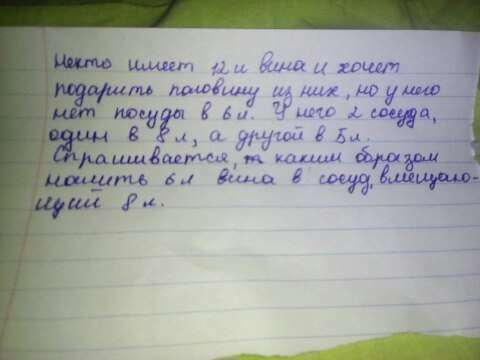 Некто имеет 12 л вина и хочет
подарить половину из них, но у него
нет посуды в 6 л. У него 2 сосуда,
один в 8 л, а другой в 5 л.
Спрашивается, каким образом
налить 6 л вина в сосуд, вмещаю-
щий 8 л.